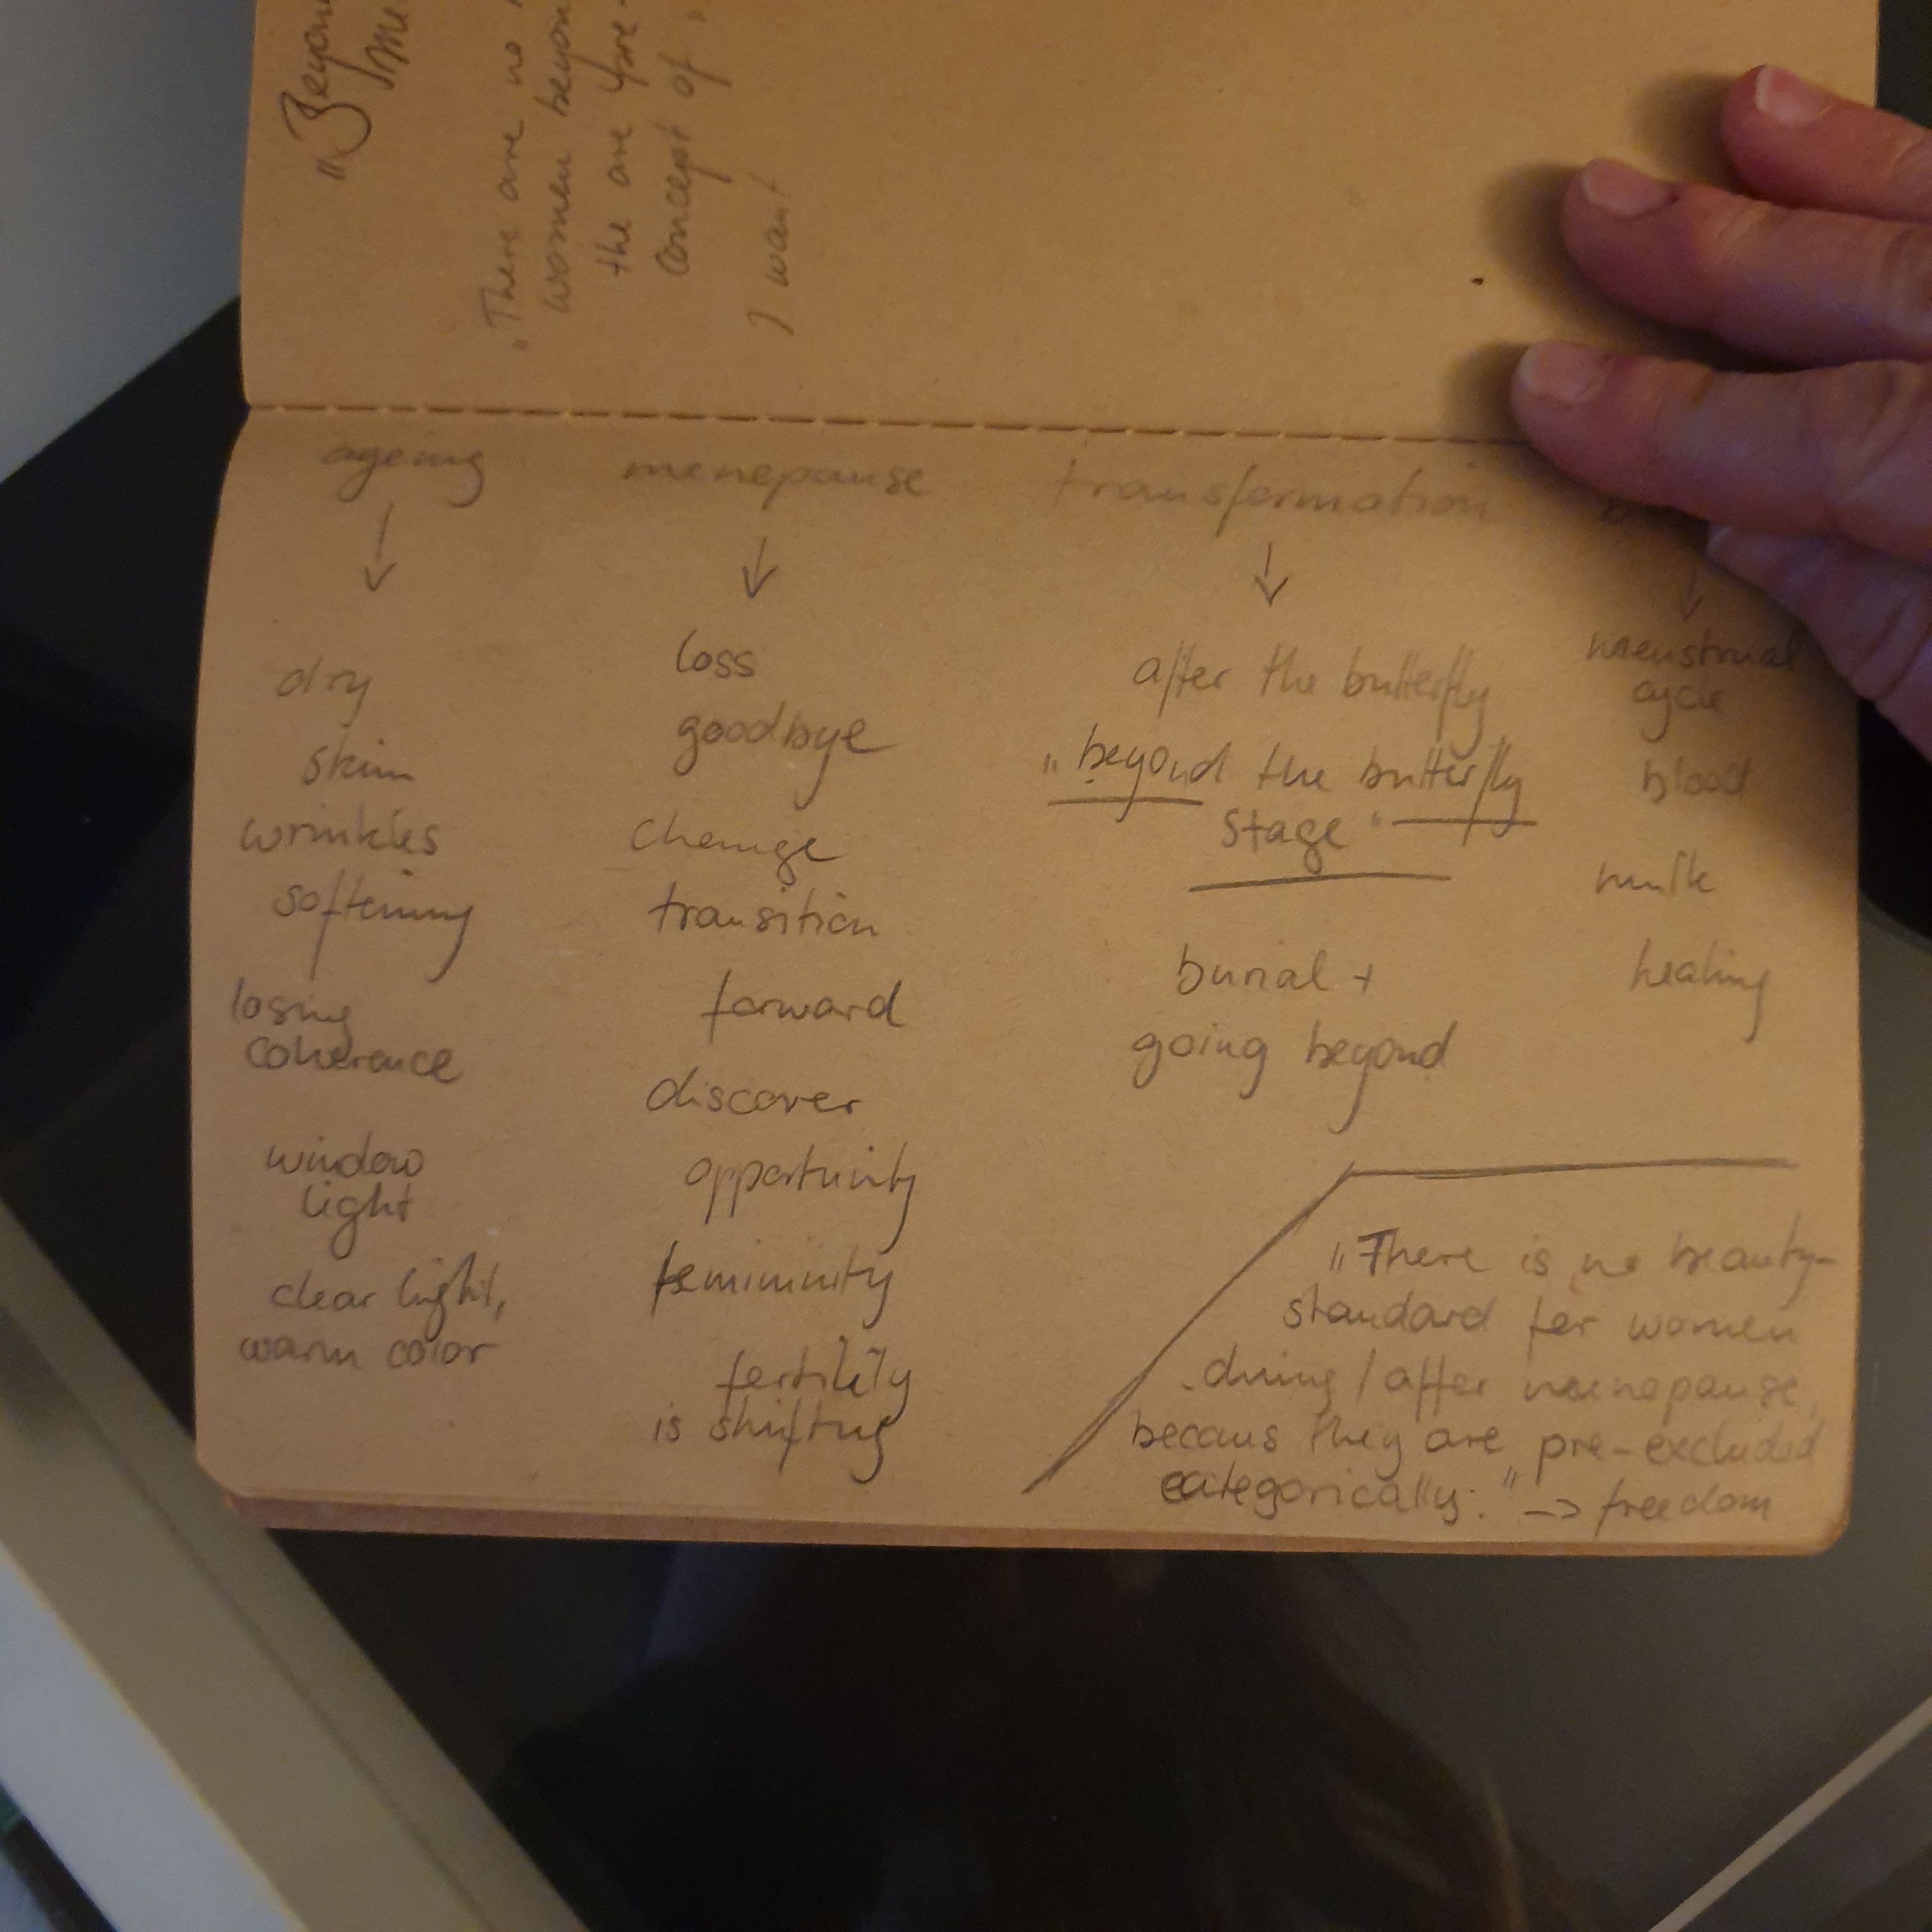 "Beyon
"There are no
women beyon
the are "pre-
concept of "
I want
ageing
↓
dry
skin
wrinkles
softening
losing
coherence
window
light
clear light,
warm color
menepause
↓
loss
goodbye
change
transition
forward
discover
opportunity
femininity
fertility
is shifting
transformation
↓
after the butterfly
"beyond the butterfly
stage"
burial +
going beyond
↓
menstrual
cycle
blood
milk
healing
"There is no beauty-
standard for women
during / after menopause,
becaus they are pre-excluded
categorically." -> freedom